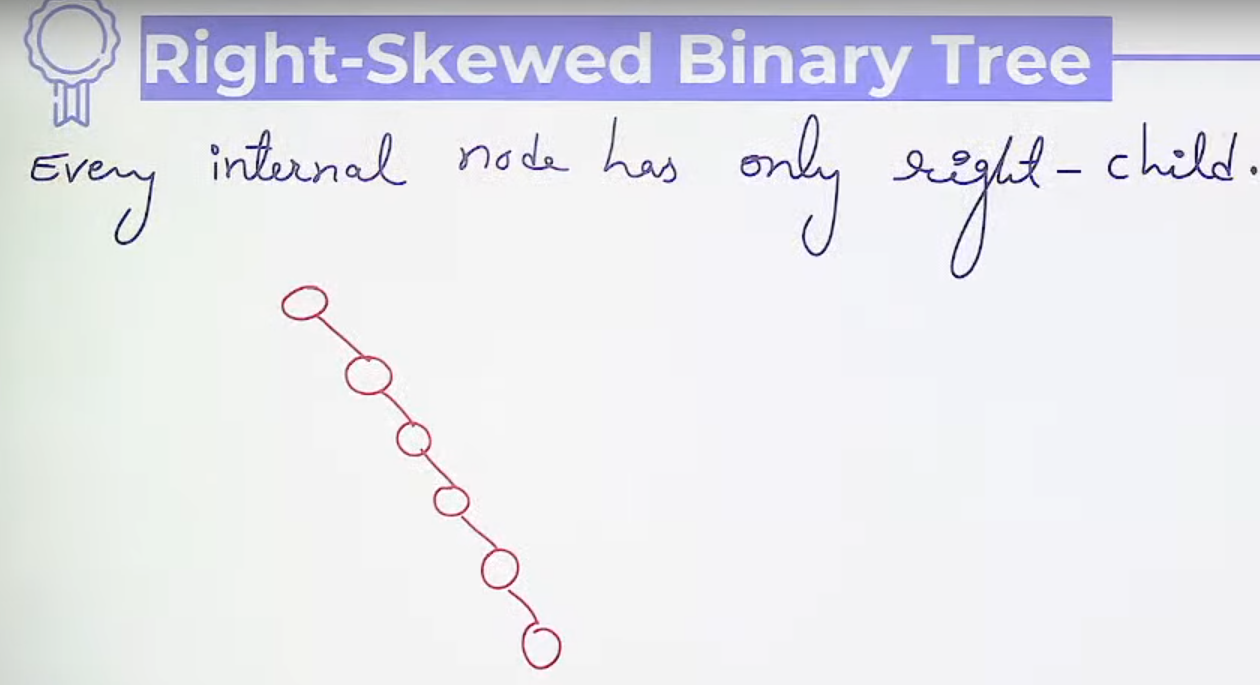 Right-Skewed Binary Tree
Every internal node has only right-child.